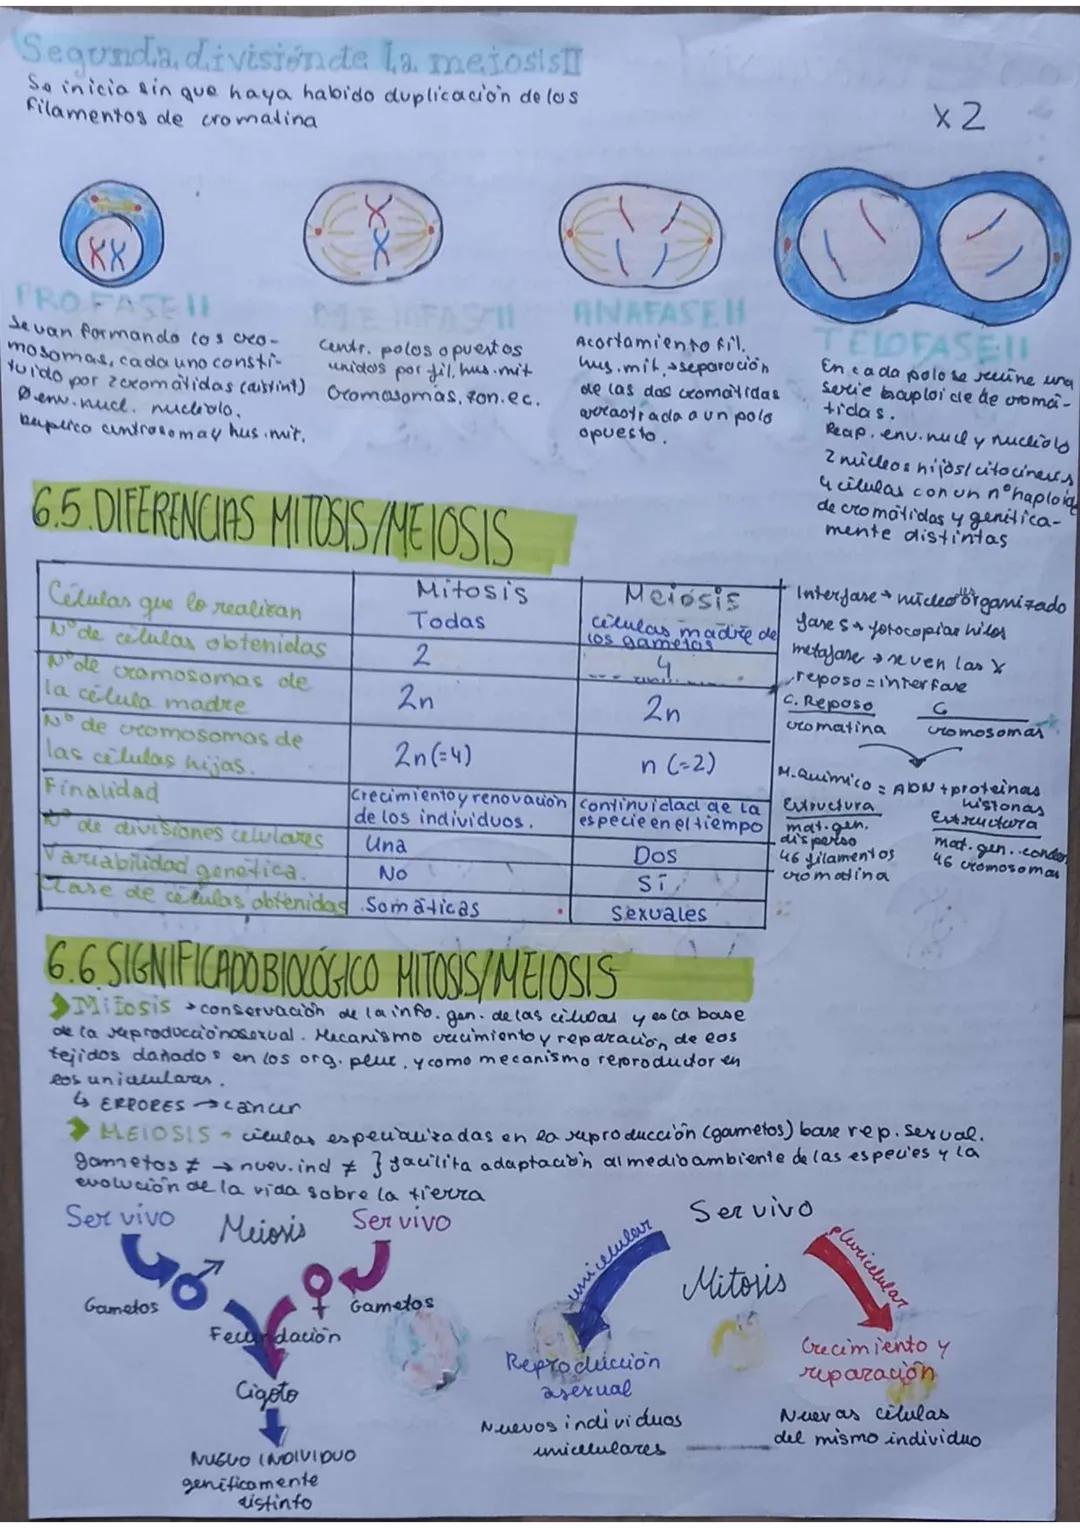 Segunda división de la meiosis II
Se inicia sin que haya habido duplicación de los
filamentos de cromatina
x2
PROFASE II
Se van formando los cro-
mosomas, cada uno consti-
tuido por 2 cromátidas (distint)
Ø env. nucl. nucleolo.
Duplica centrosoma y hus. mit.
METAFASE II
Centr. polos opuestos
unidos por fil. hus. mit
Cromosomas, zon. ec.
ANAFASE II
Acortamiento fil.
hus. mit. → separación
de las dos cromátidas
arrastrada a un polo
opuesto.
TELOFASE II
En cada polo se reúne una
serie haploide de cromá-
tidas.
Reap. env. nucl y nucleolo
2 núcleos hijos/citocinesis
4 células con un nº haploide
de cromátidas y genética-
mente distintas
6.5. DIFERENCIAS MITOSIS/MEIOSIS
Mitosis Meiosis
Células que lo realizan Todas células madre de
los gametos
Nº de células obtenidas 2 4
Nº de cromosomas de
la célula madre 2n 2n
Nº de cromosomas de
las células hijas. 2n(=4) n (=2)
Finalidad Crecimiento y renovación continuidad de la
de los individuos. especie en el tiempo
Nº de divisiones celulares Una Dos
Variabilidad genética. No Sí
Clase de células obtenidas Somáticas Sexuales
Interfase → núcleo organizado
fase S → fotocopiar hilos
metafase → se ven las X
reposo = interfase
C. Reposo C
cromatina cromosomas
M. Químico = ADN + proteínas
histonas
Estructura Estructura
mat. gen. mat. gen. conden
disperso
46 filamentos 46 cromosomas
cromatina
6.6. SIGNIFICADO BIOLÓGICO MITOSIS/MEIOSIS
Mitosis → conservación de la info. gen. de las células y es la base
de la reproducción asexual. Mecanismo crecimiento y reparación de los
tejidos dañados en los org. plur. y como mecanismo reproductor en
los unicelulares.
↳ ERRORES → cáncer
MEIOSIS - células especializadas en la reproducción (gametos) base rep. sexual.
gametos ≠ → nuev. ind ≠ } facilita adaptación al medio ambiente de las especies y la
evolución de la vida sobre la tierra
Ser vivo Meiosis Ser vivo
♂ ♀
Gametos Gametos
Fecundación
Cigoto
NUEVO INDIVIDUO
genéticamente
distinto
Ser vivo
unicelular pluricelular
Mitosis
Reproducción
asexual
Nuevos individuos
unicelulares
Crecimiento y
reparación
Nuevas células
del mismo individuo